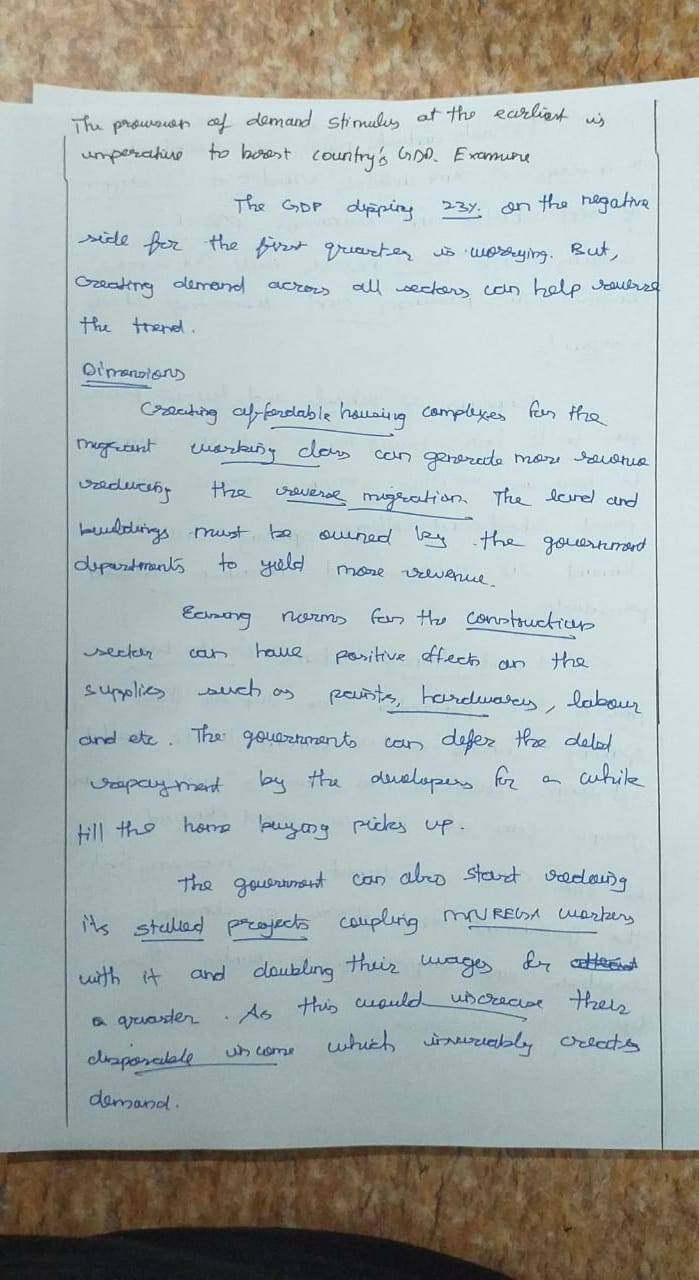 The provision of demand stimulus at the earliest is
imperative to boost country's GDP. Examine
The GDP dipping 23% on the negative
side for the first quarter is worrying. But,
Creating demand across all sectors can help reverse
the trend.
Dimensions
Creating affordable housing complexes for the
migrant working class can generate more revenue
reducing the reverse migration. The land and
buildings must be owned by the government
departments to yield more revenue.
Easing norms for the construction
sector can have positive effects on the
supplies such as paints, hardwares, labour
and etc. The governments can defer the debt
repayment by the developers for a while
till the home buying picks up.
The government can also start
its stalled projects coupling MNREGA workers
with it and doubling their wages for
a quarter. As this would increase their
disposable income which invariably creates
demand.